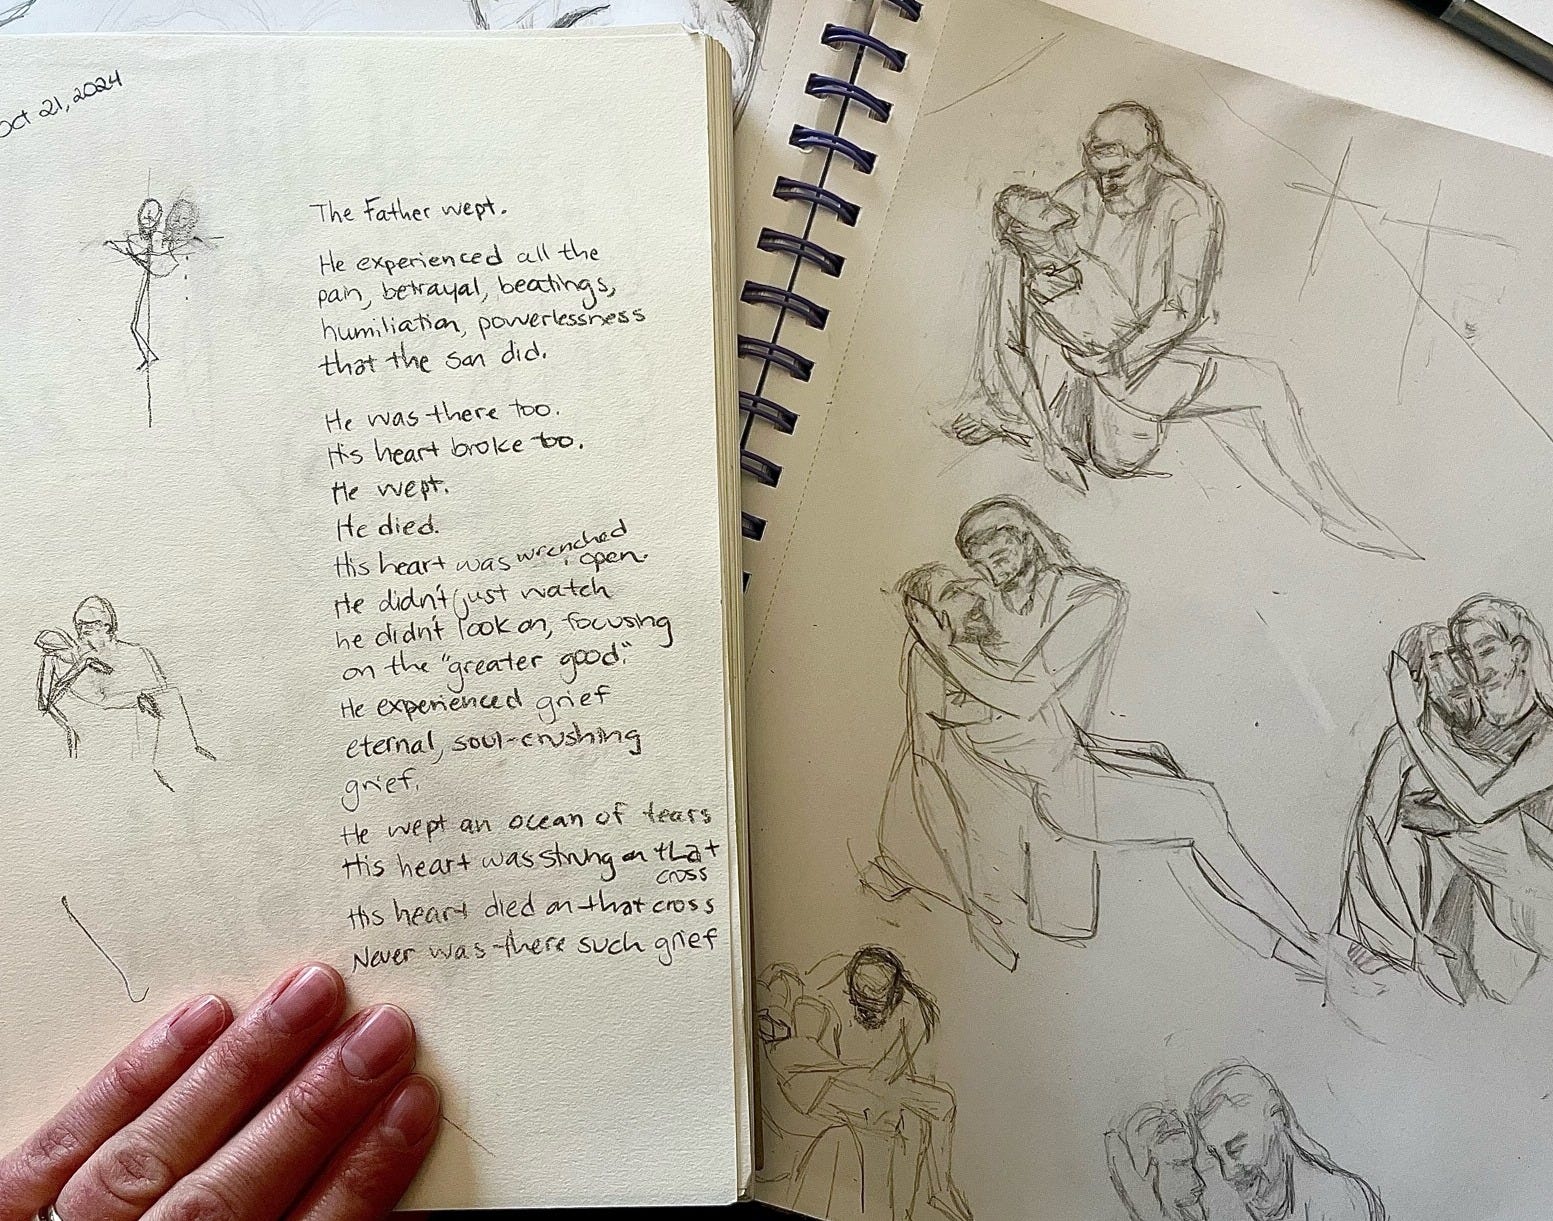 Oct 21, 2024
The Father wept.
He experienced all the
pain, betrayal, beatings,
humiliation, powerlessness
that the son did.
He was there too.
His heart broke too.
He wept.
He died.
His heart was wrenched
open.
He didn't just watch
he didn't look on, focusing
on the "greater good."
He experienced grief
eternal, soul-crushing
grief.
He wept an ocean of tears
His heart was strung on that
cross
His heart died on that cross
Never was there such grief